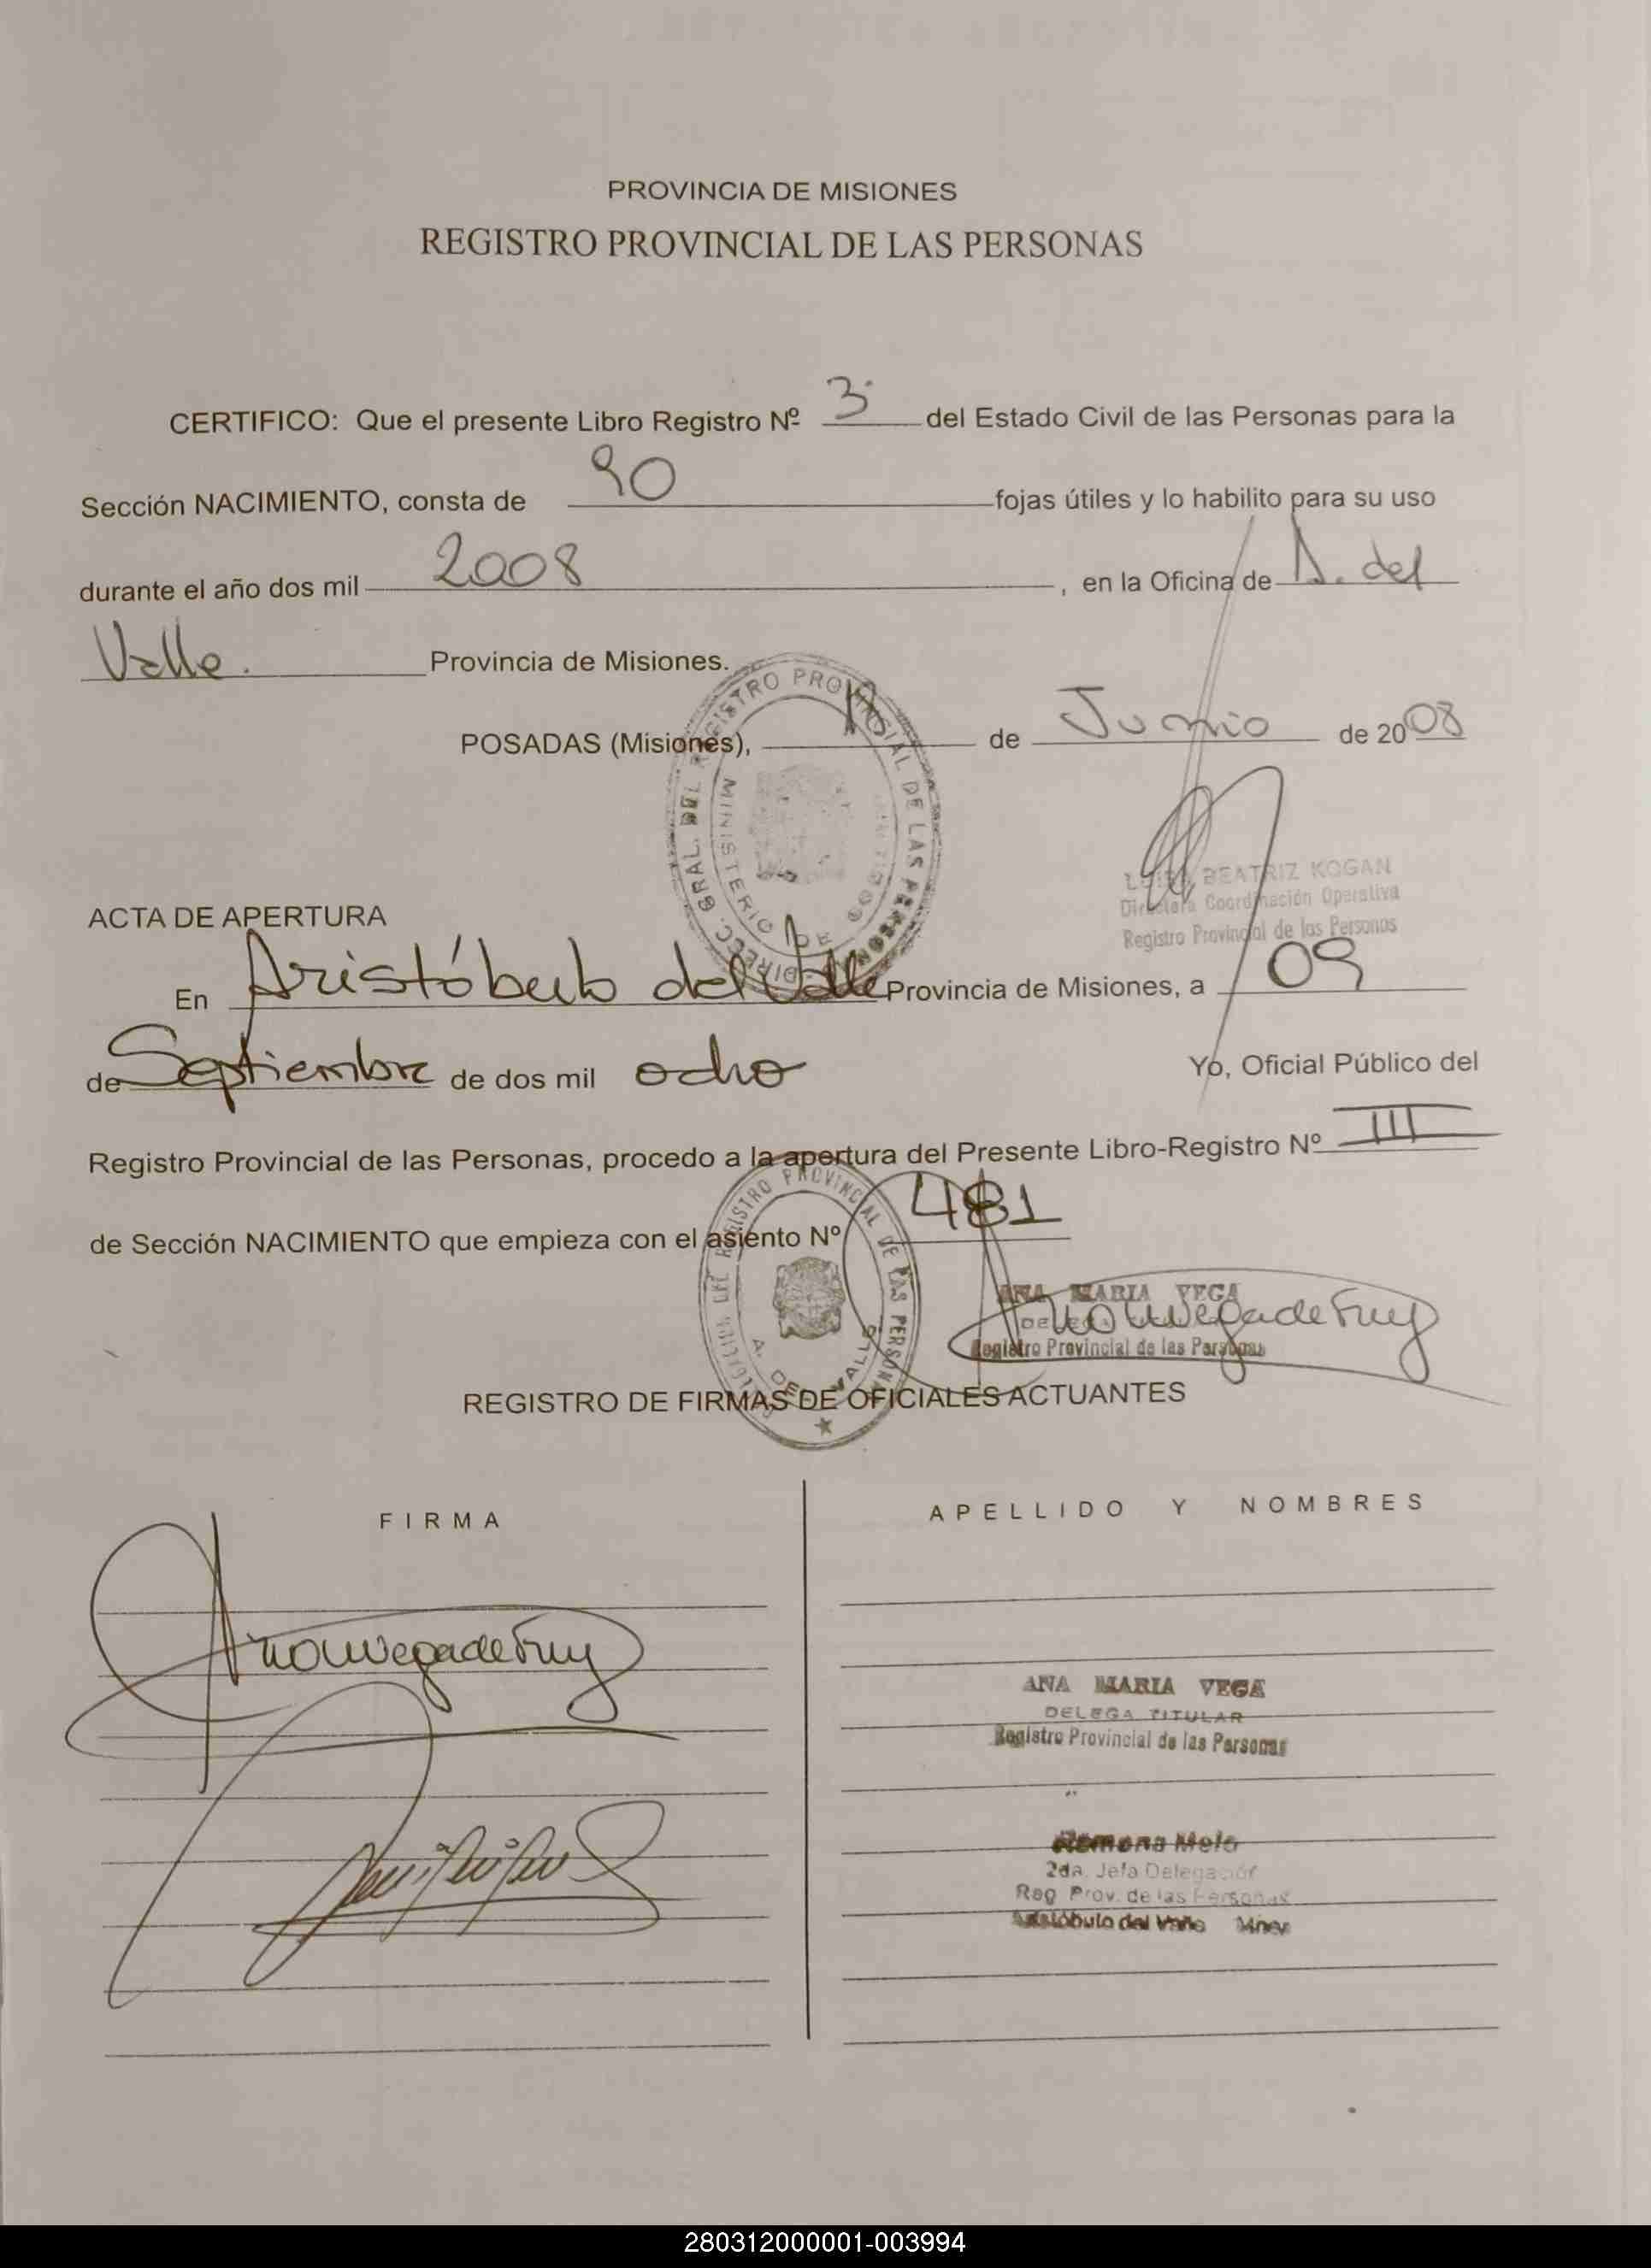 PROVINCIA DE MISIONES
REGISTRO PROVINCIAL DE LAS PERSONAS
CERTIFICO: Que el presente Libro Registro Nº 3 del Estado Civil de las Personas para la
Sección NACIMIENTO, consta de 90 fojas útiles y lo habilito para su uso
durante el año dos mil 2008, en la Oficina de A. del
Valle. Provincia de Misiones.
POSADAS (Misiones), de Junio de 2008
DIREC. GRAL. DEL REGISTRO PROVINCIAL DE LAS PERSONAS
MINISTERIO DE
BEATRIZ KOGAN
Directora Coordinación Operativa
Registro Provincial de las Personas
ACTA DE APERTURA
En Aristóbulo del Valle Provincia de Misiones, a 09
de Septiembre de dos mil ocho Yo, Oficial Público del
Registro Provincial de las Personas, procedo a la apertura del Presente Libro-Registro Nº III
de Sección NACIMIENTO que empieza con el asiento Nº 481
DEL REGISTRO PROVINCIAL DE LAS PERSONAS
A. DEL VALLE
ANA MARIA VEGA
Registro Provincial de las Personas
REGISTRO DE FIRMAS DE OFICIALES ACTUANTES
FIRMA
APELLIDO Y NOMBRES
ANA MARIA VEGA
DELEGA TITULAR
Registro Provincial de las Personas
Ramona Melo
2da. Jefa Delegación
Reg. Prov. de las Personas
Aristóbulo del Valle Mnes
280312000001-003994